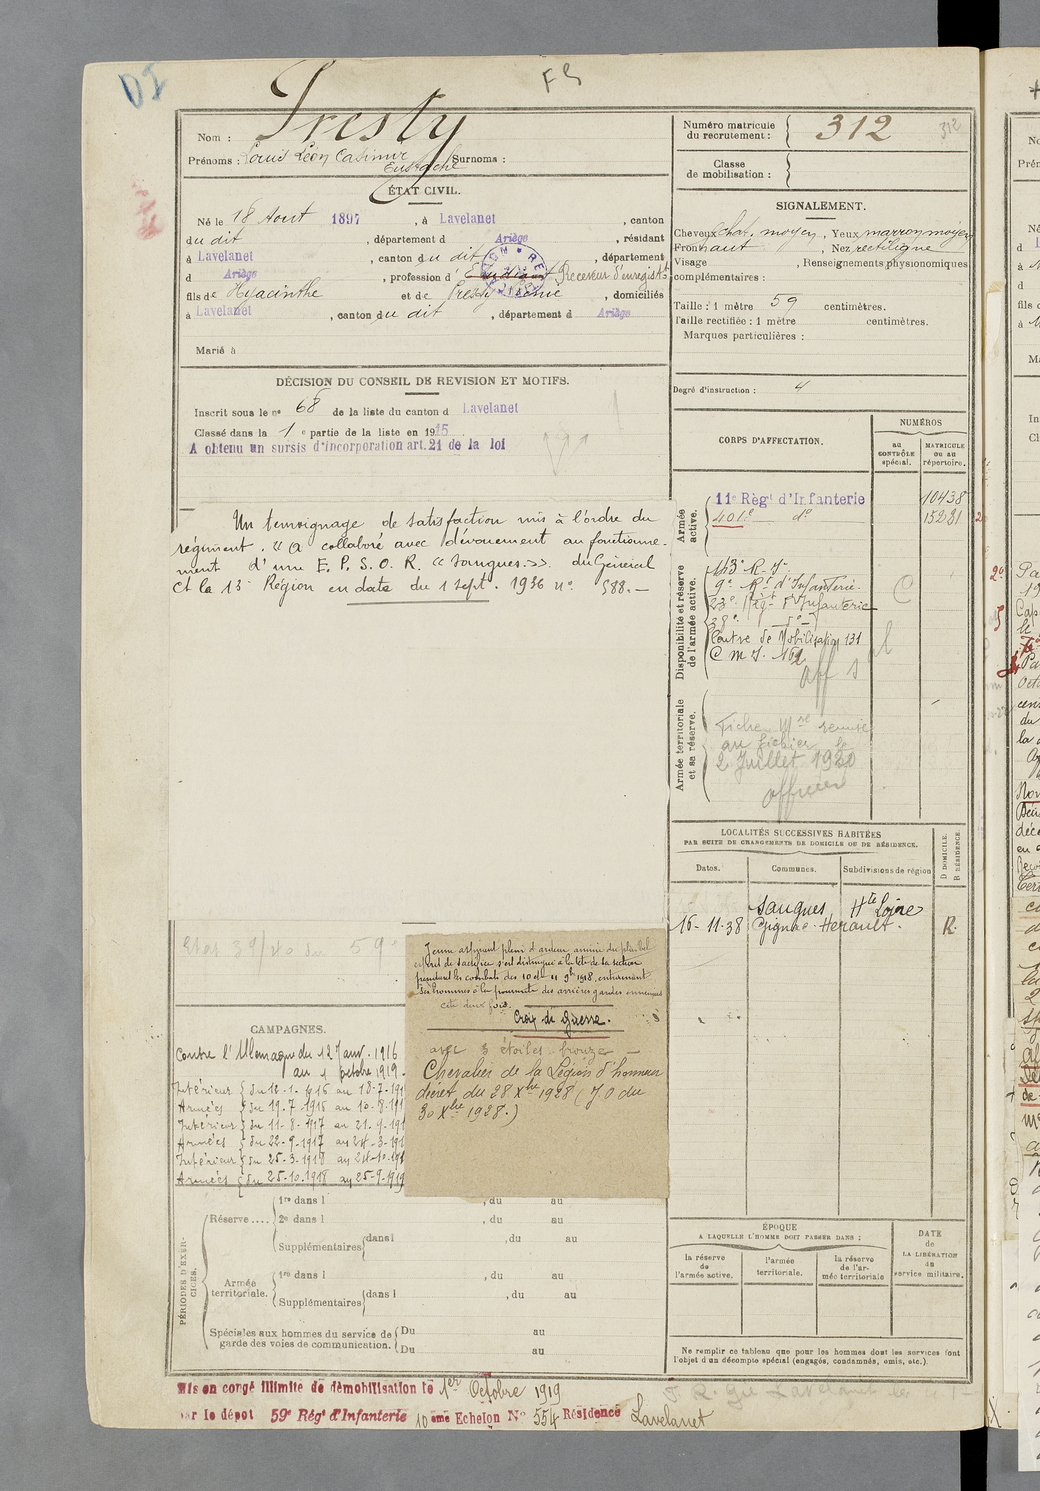 DI
FS
Nom : Presty
Prénoms : Louis Léon Casimir Surnoms :
Eustache
ÉTAT CIVIL.
Né le 18 Aout 1897, à Lavelanet, canton
du dit, département d Ariège, résidant
à Lavelanet, canton du dit, département
d Ariège, profession d' Etudiant Receveur d'enregistt
fils de Hyacinthe et de Presty, domiciliés
à Lavelanet, canton du dit, département d Ariège
Marié à
DÉCISION DU CONSEIL DE REVISION ET MOTIFS.
Inscrit sous le no 68 de la liste du canton d Lavelanet
Classé dans la 1 e partie de la liste en 1915
A obtenu un sursis d'incorporation art. 21 de la loi
Un temoignage de satisfaction mis à l'ordre du
régiment. "A collaboré avec dévouement au fonctionne-
ment d'une E. P. S. O. R. "Saugues." du Général
Ct la 13e Région en date du 1 sept. 1936 no 588.-
59e
CAMPAGNES.
Contre l'Allemagne du 12 Janv. 1916
au 1 octobre 1919
Intérieur { du 12-1-1916 au 18-7-191
Armées { du 19-7-1916 au 10-8-191
Intérieur { du 11-8-1917 au 21-9-191
Armées { du 22-9-1917 au 24-3-191
Intérieur { du 25-3-1918 au 24-10-191
Armées { du 25-10-1918 au 25-9-1919
Jeune aspirant plein d'ardeur animé du plus bel
esprit de sacrifice s'est distingué à la tête de sa section
pendant les combats des 10 et 11 9bre 1918, entrainant
ses hommes à la poursuite des arrières gardes ennemies
cité deux fois.
Croix de Guerre.
avec 3 étoiles bronze
Chevalier de la Légion d'honneur
décret du 28 Xbre 1928 (J.O du
30 Xbre 1928.)
PÉRIODES D'EXERCICES.
Réserve .... 1re dans l , du au
2e dans l , du au
Supplémentaires dans l , du au
Armée territoriale. 1re dans l , du au
Supplémentaires dans l , du au
Spéciales aux hommes du service de Du au
garde des voies de communication. Du au
Mis en congé illimité de démobilisation le 1er Octobre 1919
par le dépot 59e Régt d'Infanterie 10 ème Echelon No 554 Résidence Lavelanet
Numéro matricule
du recrutement : 312
312
Classe
de mobilisation :
SIGNALEMENT.
Cheveux chat. moyen, Yeux marron moyen
Front haut, Nez rectiligne
Visage , Renseignements physionomiques
complémentaires :
Taille : 1 mètre 59 centimètres.
Taille rectifiée : 1 mètre centimètres.
Marques particulières :
Degré d'instruction : 4
CORPS D'AFFECTATION.
NUMÉROS
au CONTRÔLE spécial.
MATRICULE ou au répertoire.
Armée active.
11e Régt d'Infanterie 10438
401e do 15281
Disponibilité et réserve de l'armée active.
143e R. I.
9e Rt d'Infanterie.
23e Régt d'Infanterie
38e do
Centre de Mobilisation 131
C M I. 162
aff s
Armée territoriale et sa réserve.
Fiche Mle remise
au fichier le
2 Juillet 1930
officier
LOCALITÉS SUCCESSIVES HABITÉES
PAR SUITE DE CHANGEMENTS DE DOMICILE OU DE RÉSIDENCE.
Dates. Communes. Subdivisions de région
D DOMICILE.
R RÉSIDENCE.
Saugues Hte Loire
16-11-38 Gignac Herault. R.
ÉPOQUE
A LAQUELLE L'HOMME DOIT PASSER DANS :
la réserve de l'armée active.
l'armée territoriale.
la réserve de l'armée territoriale
DATE de LA LIBÉRATION du service militaire.
Ne remplir ce tableau que pour les hommes dont les services font
l'objet d'un décompte spécial (engagés, condamnés, omis, etc.).